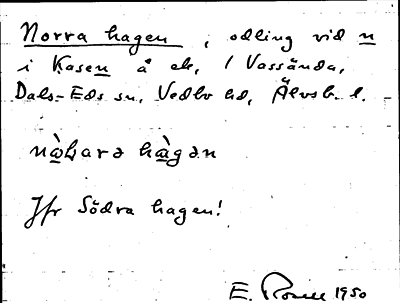 Norra hagen, odling vid n
i Kasen å ek, 1 Vassända,
Dals-Eds sn, Vedbo hd, Älvsb. l.
hagən
Jfr Södra hagen!
E. 1950